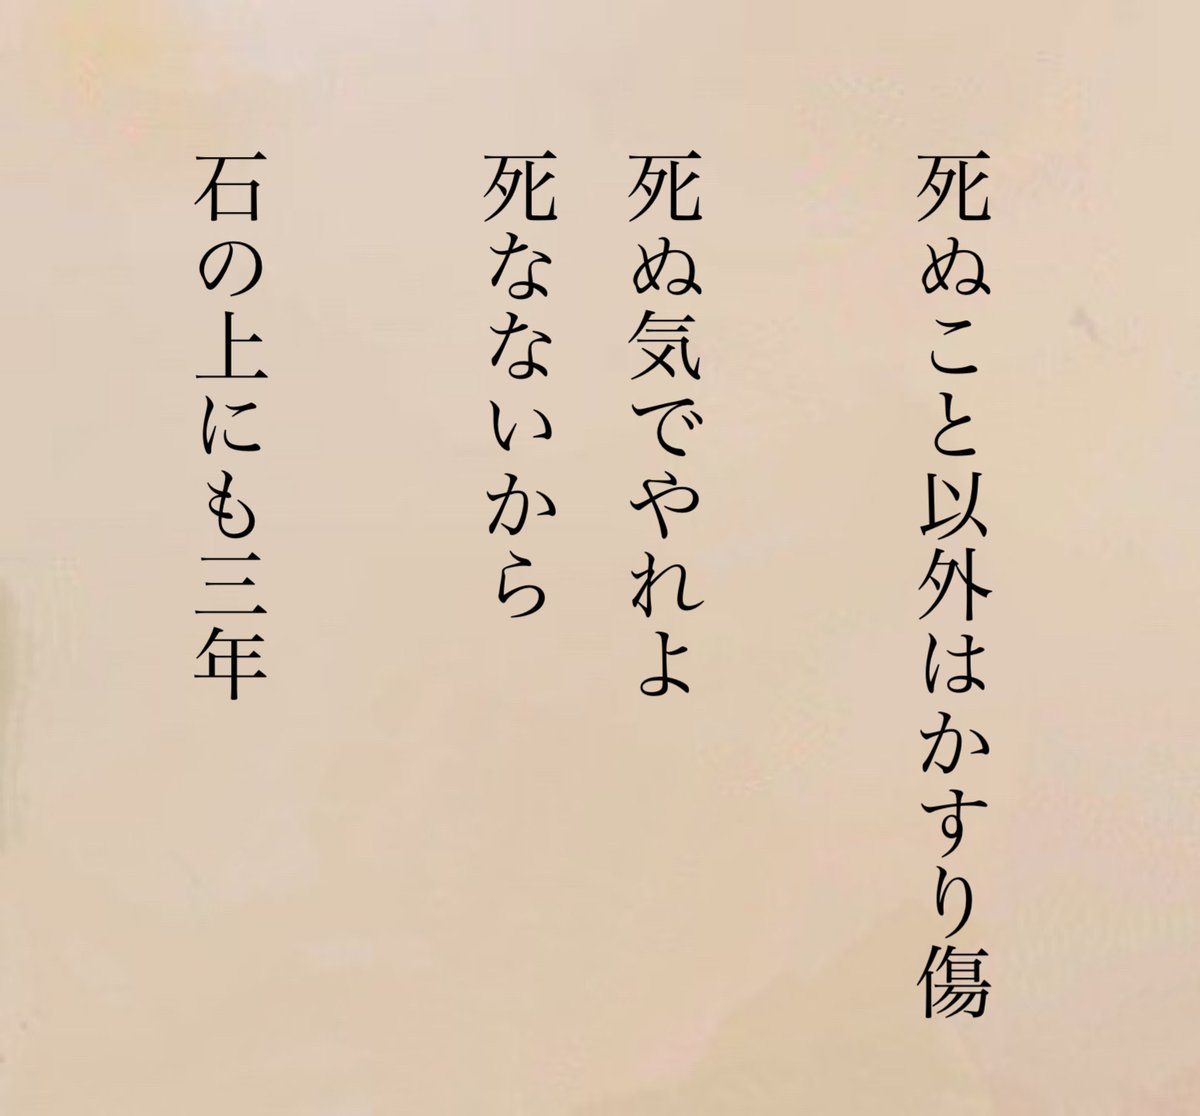 死ぬこと以外はかすり傷
死ぬ気でやれよ
死なないから
石の上にも三年